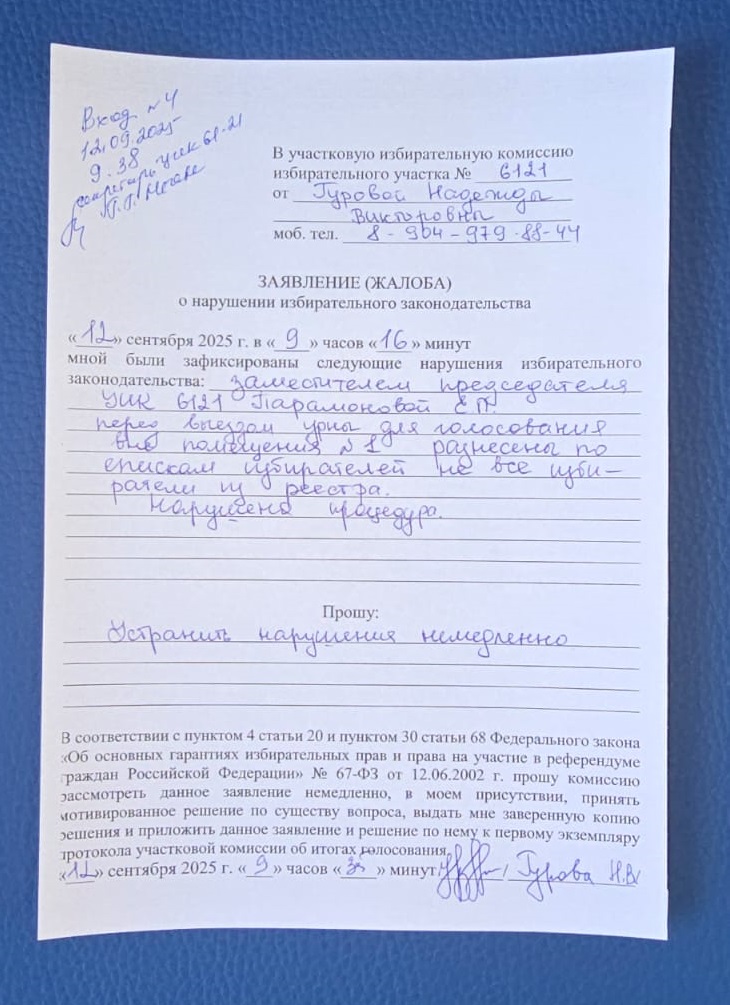 Вход №4
12.09.2025
9.38
секретарь УИК 61-21
В участковую избирательную комиссию
избирательного участка № 6121
от Гуровой Надежды
Викторовны
моб. тел. 8-904-979-88-44
ЗАЯВЛЕНИЕ (ЖАЛОБА)
о нарушении избирательного законодательства
«12» сентября 2025 г. в «9» часов «16» минут
мной были зафиксированы следующие нарушения избирательного
законодательства: заместителем председателя
УИК 6121 Парамоновой Е.П.
перед выездом урны для голосования
вне помещения №1 разнесены по
спискам избирателей не все изби-
ратели из реестра.
Нарушена процедура.
Прошу:
Устранить нарушения немедленно
В соответствии с пунктом 4 статьи 20 и пунктом 30 статьи 68 Федерального закона
«Об основных гарантиях избирательных прав и права на участие в референдуме
граждан Российской Федерации» № 67-ФЗ от 12.06.2002 г. прошу комиссию
рассмотреть данное заявление немедленно, в моем присутствии, принять
мотивированное решение по существу вопроса, выдать мне заверенную копию
решения и приложить данное заявление и решение по нему к первому экземпляру
протокола участковой комиссии об итогах голосования.
«12» сентября 2025 г. «9» часов « » минут / Гурова Н.В.